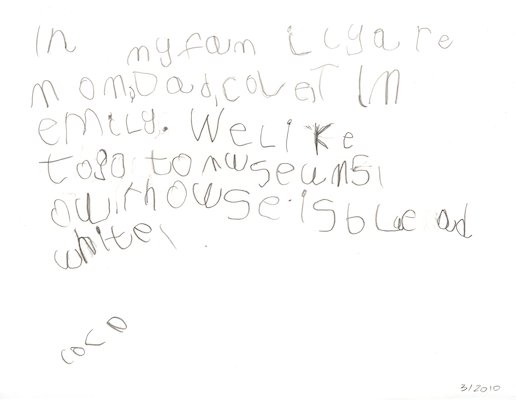 In my family are
mom, Dad, colet Im
emily. We like
to go to museums,
owr howse is blue and
white,
coco
3/2010